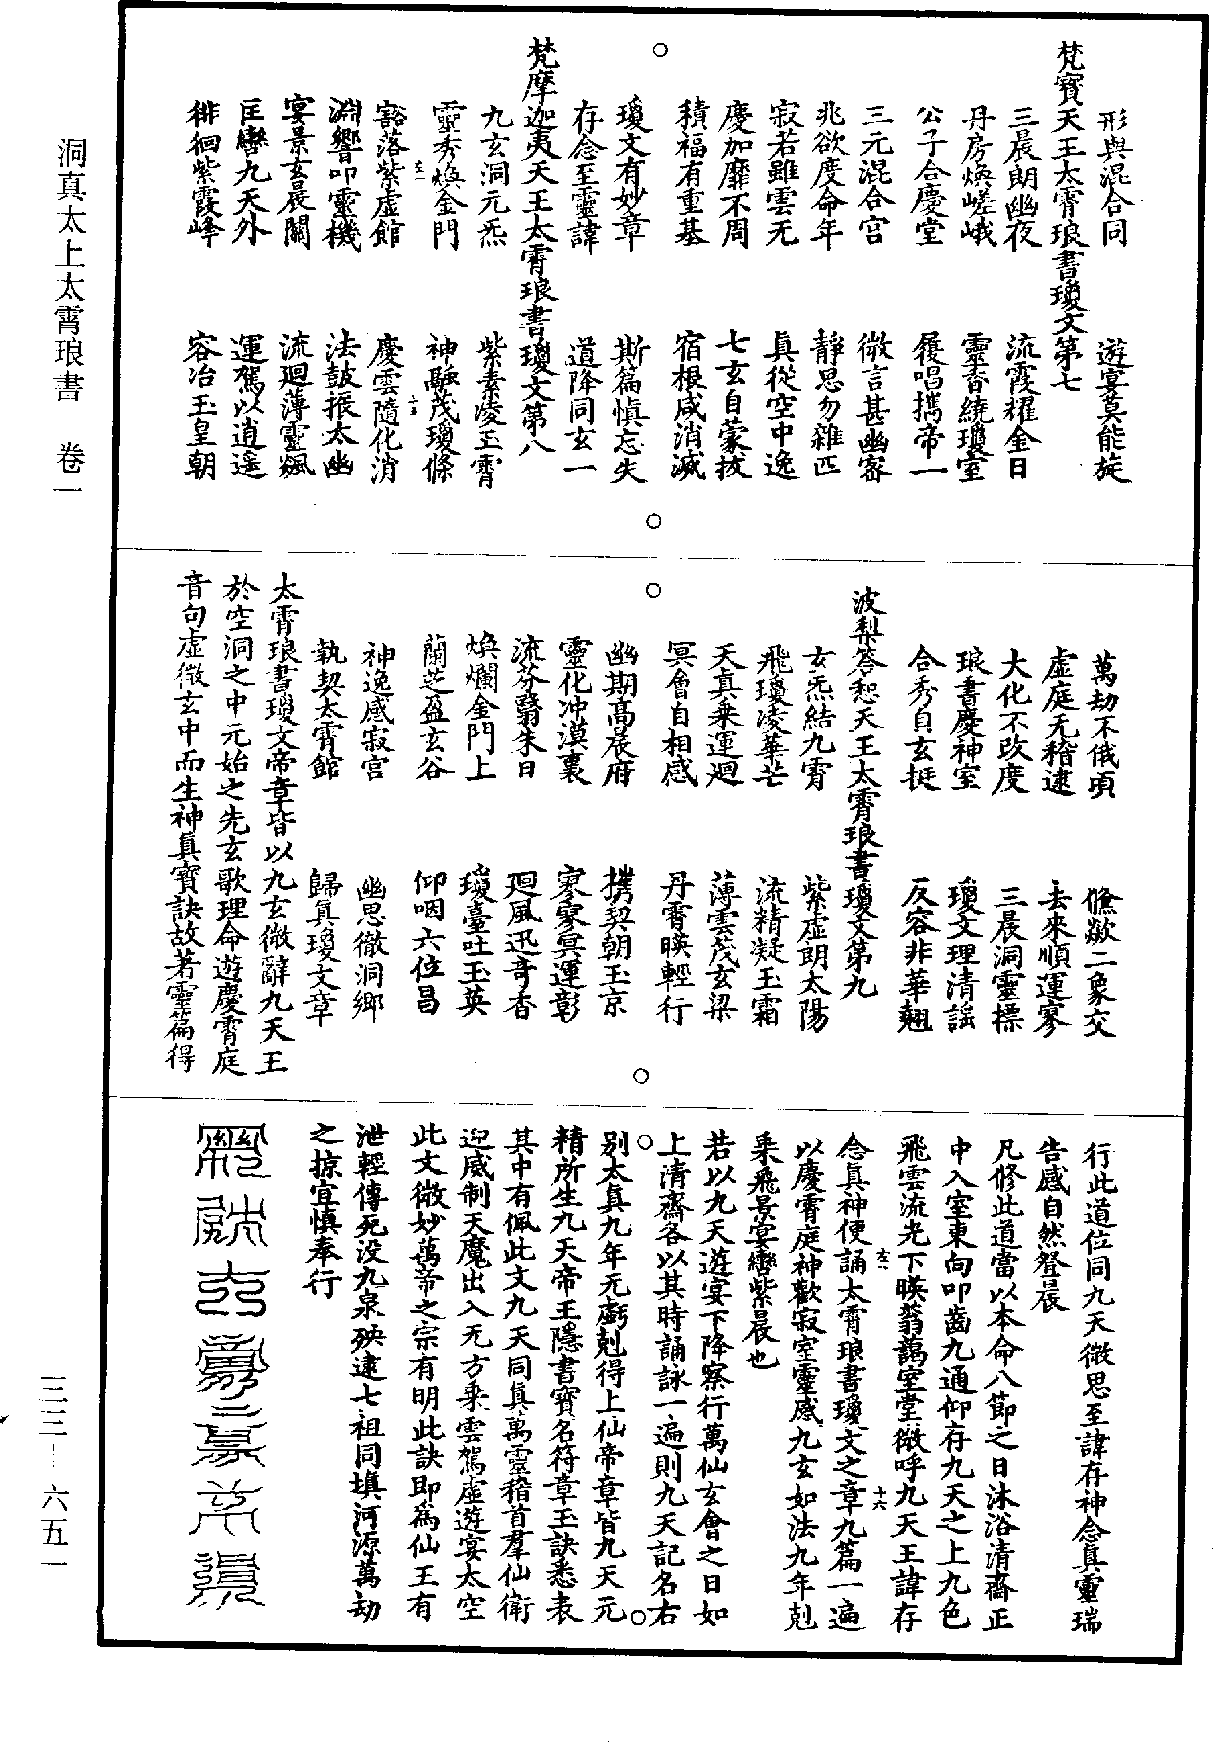 形與混合同　遊宴莫能旋
梵寶天王太霄琅書瓊文第七
三晨朗幽夜　流霞耀金日
丹房煥嵯峨　靈香繞瓊室
公子合慶堂　履唱攜帝一
三元混合宮　微言甚幽密
兆欲度命年　靜思勿雜匹
寂若雖雲无　真從空中逸
慶加靡不周　七玄自蒙拔
積福有重基　宿根咸消滅
瓊文有妙章　斯篇慎忘失
存念至靈諱　道降同玄一
梵摩迦夷天王太霄琅書瓊文第八
九玄洞元炁　紫素凌玉霄
靈秀煥金門　神融茂瓊條
豁落紫虛館　慶雲隨化消
淵響叩靈機　法鼓振太幽
宴景玄晨闕　流迴薄靈飈
匡轡九天外　運駕以逍遙
徘徊紫霞峰　容冶玉皇朝
萬劫不俄頃　儵歘二象交
虛庭无稽逮　去來順運寥
大化不改度　三晨洞靈標
琅書慶神室　瓊文理清謠
合秀自玄挺　反容非華翹
波梨答惒天王太霄琅書瓊文第九
玄炁結九霄　紫虛朗太陽
飛瓊凌華芒　流精凝玉霜
天真乘運迴　薄雲茂玄梁
冥會自相感　丹霄暎輕行
幽期高晨府　攜契朝玉京
靈化沖漠裏　寥寥冥運彰
流芬翳朱日　迴風迅奇香
煥爛金門上　瓊臺吐玉英
蘭芝盈玄谷　仰咽六位昌
神逸感寂宮　幽思徹洞鄉
執契太霄館　歸真瓊文章
太霄琅書瓊文帝章皆以九玄微辭九天王
於空洞之中元始之先玄歌理命遊慶霄庭
音句虛微玄中而生神真寶訣故著靈篇得
行此道位同九天微思至諱存神念真靈瑞
告感自然登晨
凡修此道當以本命八節之日沐浴清齋正
中入室東向叩齒九通仰存九天之上九色
飛雲流光下暎蓊藹室堂微呼九天王諱存
念真神便誦太霄琅書瓊文之章九篇一遍
以慶霄庭神歡寂室靈感九玄如法九年剋
乘飛景宴轡紫晨也
若以九天遊宴下降察行萬仙玄會之日如
上清齋各以其時誦詠一遍則九天記名右
別太真九年无虧剋得上仙帝章皆九天元
精所生九天帝王隱書寶名符章玉訣悉表
其中有佩此文九天同真萬靈稽首羣仙衛
迎威制天魔出入无方乘雲駕虛遊宴太空
此文微妙萬帝之宗有明此訣即為仙王有
泄輕傳死没九泉殃逮七祖同填河源萬劫
之掠宜慎奉行
洞真太上太霄琅書　卷一
三三—六五一